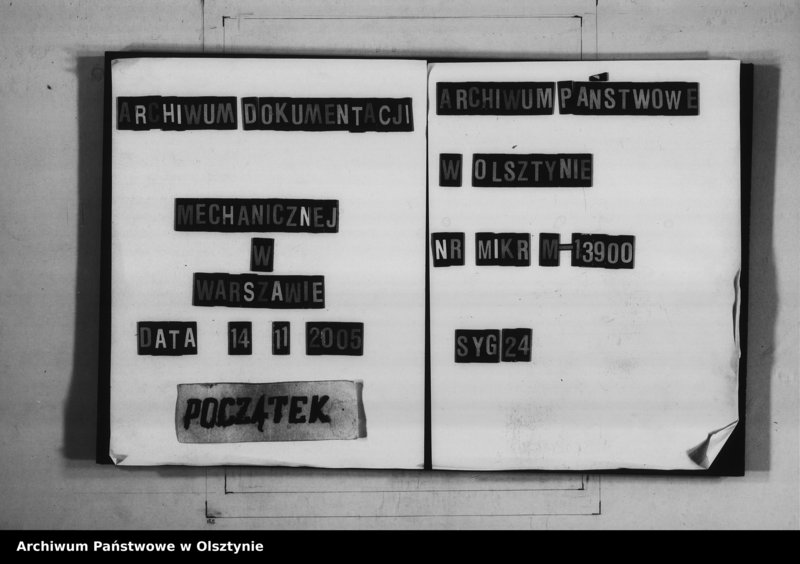 ARCHIWUM DOKUMENTACJI
MECHANICZNEJ
W
WARSZAWIE
DATA 14 11 2005
POCZĄTEK
ARCHIWUM PAŃSTWOWE
W OLSZTYNIE
NR MIKR M-13900
SYG 24
Archiwum Państwowe w Olsztynie